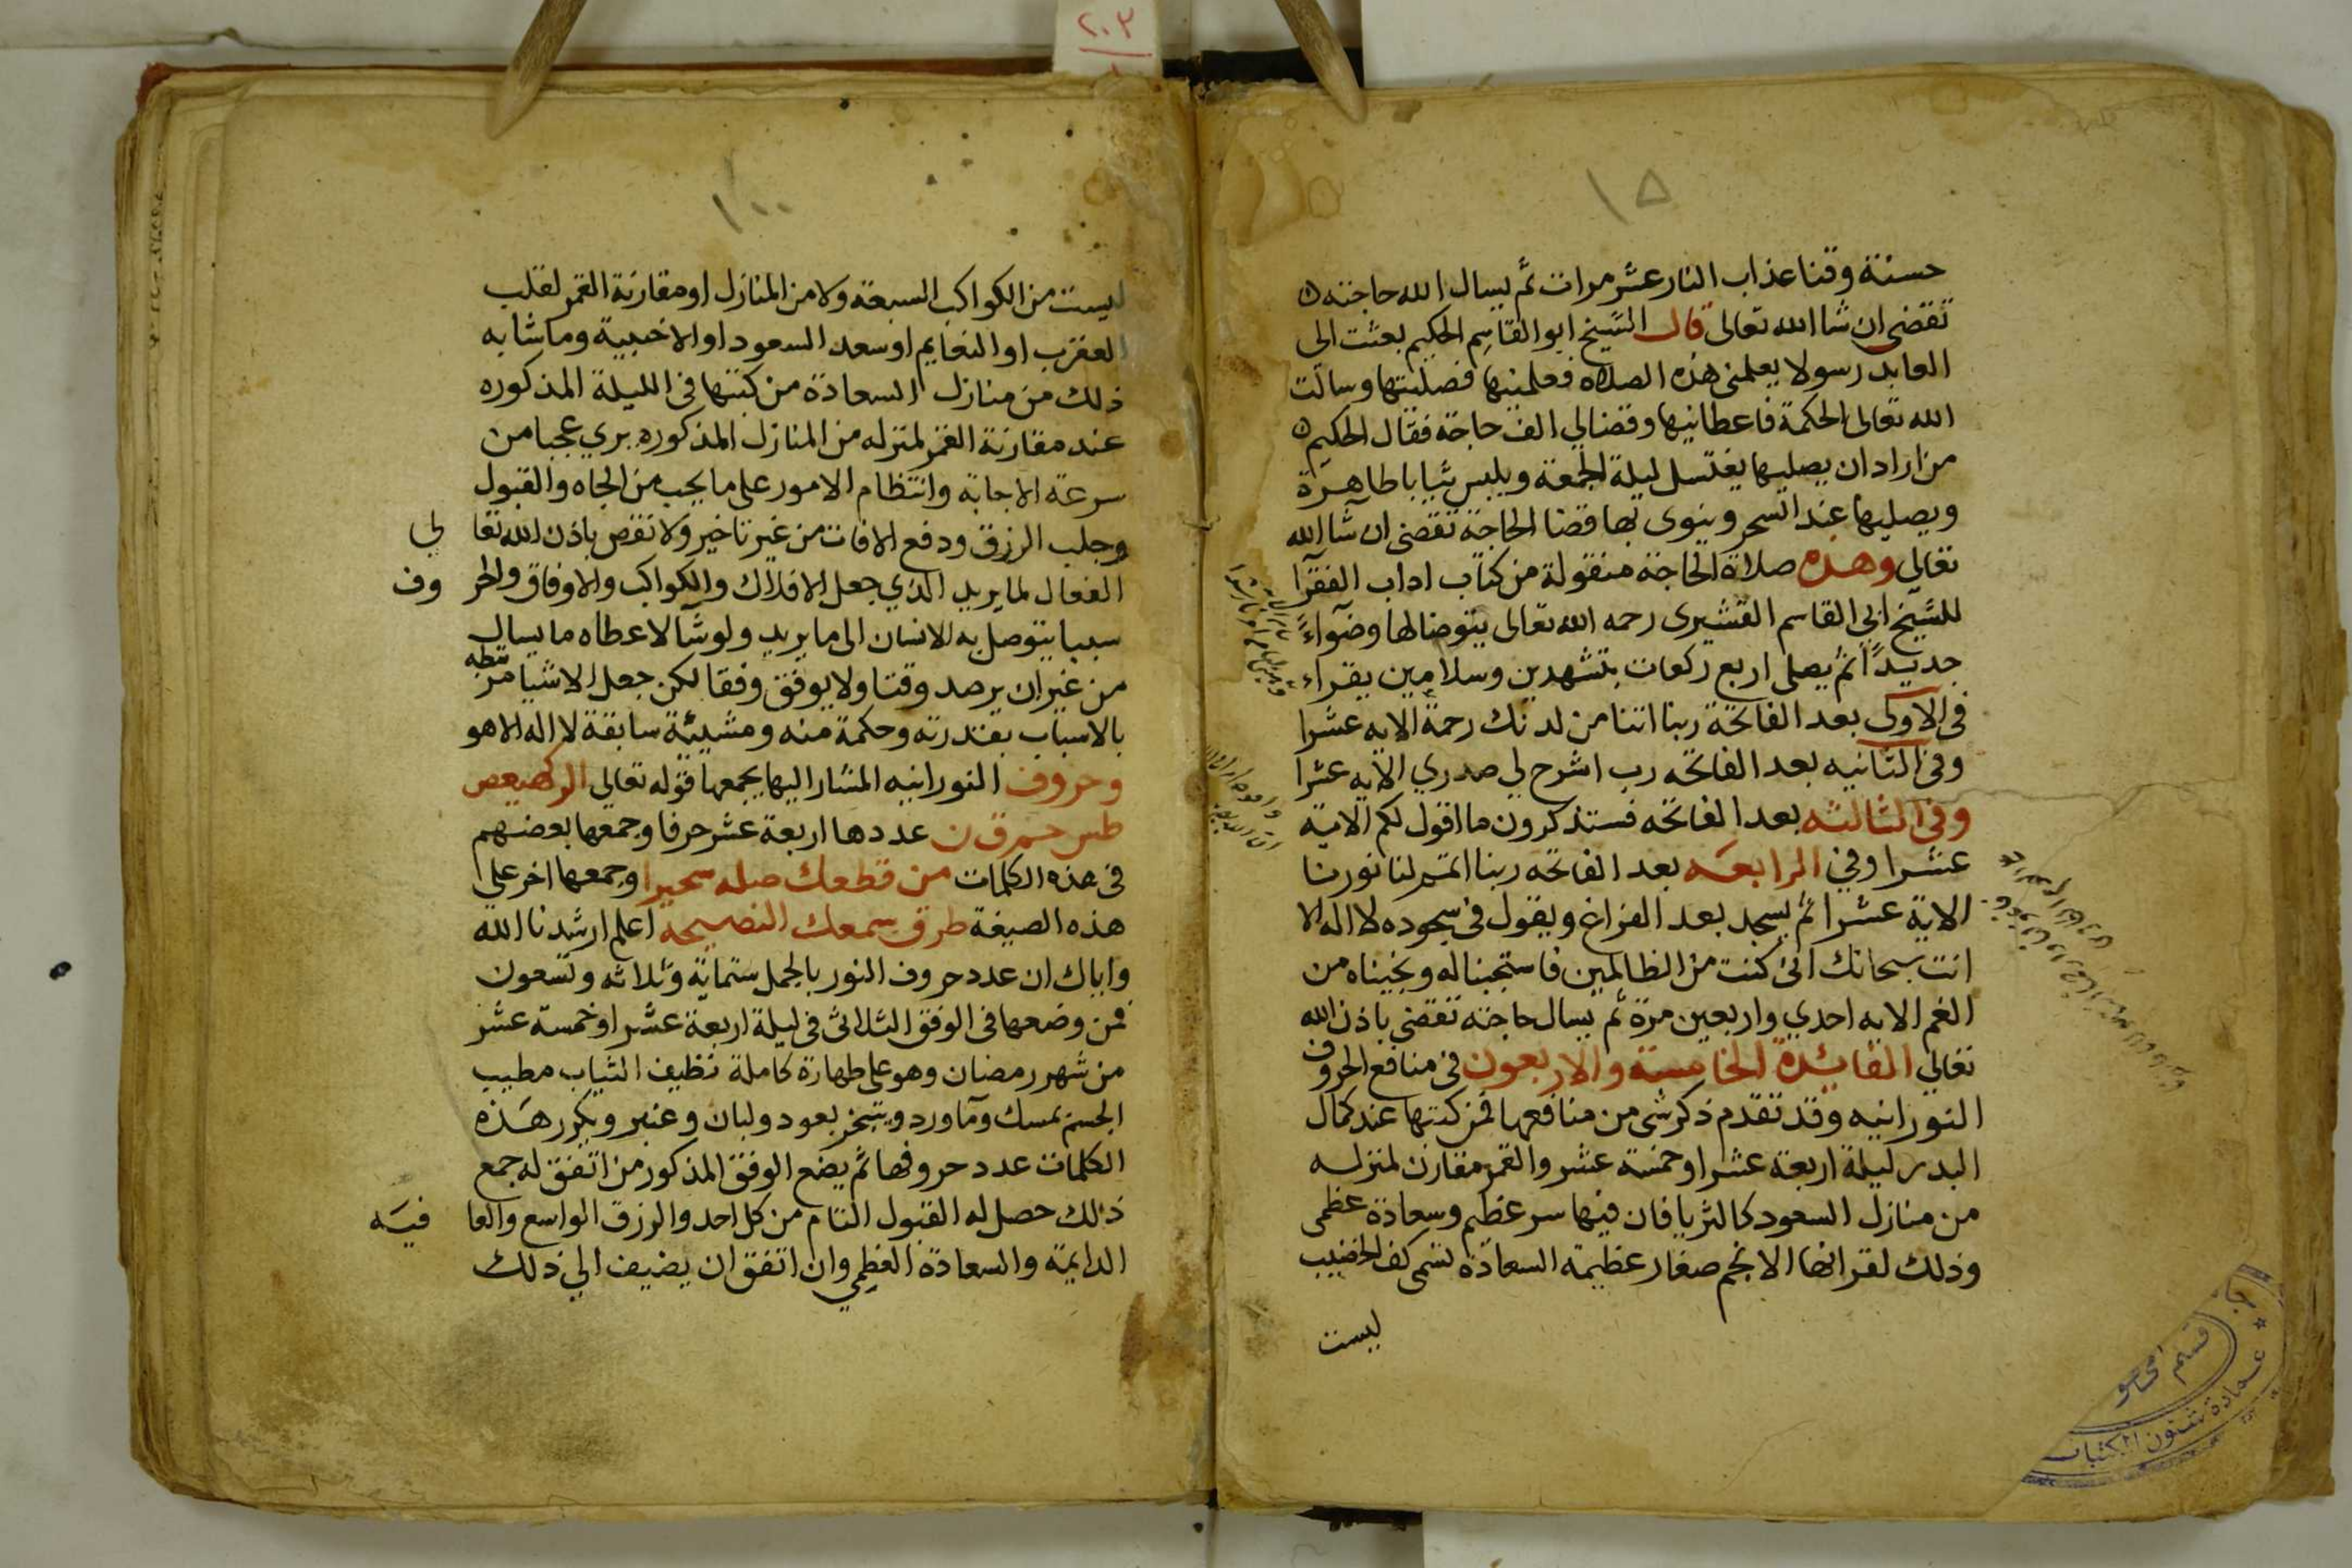 ١٥
حسنة وقنا عذاب النار عشر مرات ثم يسال الله حاجته
تقضى ان شا الله تعالى قال الشيخ ابو القاسم الحكيم بعثت الى
العابد رسولا يعلمنى هذه الصلاه فعلمنيها فصليتها وسالت
الله تعالى الحكمة فاعطانيها وقضا لي الف حاجة فقال الحكيم
من اراد ان يصليها يغتسل ليلة الجمعة ويلبس ثيابا طاهرة
ويصليها عند السحر وينوى بها قضا الحاجة تقضى ان شآ الله
تعالى وهذه صلاة الحاجة منقولة من كتاب اداب الفقرا
للشيخ ابي القاسم القشيرى رحمه الله تعالى يتوضا لها وضوآءً
جديداً ثم يصلى اربع ركعات بتشهدين وسلامين يقراء
فى الاولى بعد الفاتحة ربنا اتنا من لدنك رحمة الايه عشرا
وفى الثانيه بعد الفاتحه رب اشرح لي صدري الايه عشرا
وفى الثالثه بعد الفاتحه فستذكرون ما اقول لكم الاية
عشرا وفى الرابعه بعد الفاتحه ربنا اتمم لنا نورنا
الاية عشرا ثم يسجد بعد الفراغ ويقول فى سجوده لا اله الا
انت سبحانك انى كنت من الظالمين فاستجبنا له ونجيناه من
الغم الايه احدي واربعين مرة ثم يسال حاجته تقضى باذن الله
تعالى الفائدة الخامسة والاربعون فى منافع الحروف
النورانيه وقد تقدم ذكر شى من منافعها فمن كتبها عند كمال
البدر ليلة اربعة عشر او خمسة عشر والقمر مقارن لمنزله
من منازل السعود كالثريا فان فيها سر عظيم وسعادة عظمى
وذلك لقرانها الانجم صغار عظيمة السعادة تسمى كف الخضيب
ليست
١٠٠
ليست من الكواكب السبعة ولا من المنازل او مقارنة القمر لقلب
العقرب او النعايم او سعد السعود او الاخبية وما شابه
ذلك من منازل السعادة من كتبها فى الليلة المذكوره
عند مقارنة القمر لمنزله من المنازل المذكوره يرى عجبا من
سرعة الاجابة وانتظام الامور على ما يحب من الجاه والقبول
وجلب الرزق ودفع الافات من غير تاخير ولا نقص باذن الله تعا لى
الفعال لما يريد الذي جعل الافلاك والكواكب والاوفاق والحر وف
سببا يتوصل به الانسان الى ما يريد ولو شآ لاعطاه ما يسال
من غير ان يرصد وقتا ولا يوفق وفقا لكن جعل الاشيا مرتبطه
بالاسباب بقدرته وحكمة منه ومشيئة سابقة لا اله الا هو
وحروف النورانيه المشار اليها يجمعها قوله تعالى الر كهيعص
طس حم ق ن عددها اربعة عشر حرفا وجمعها بعضهم
فى هذه الكلمات من قطعك صله سحيرا وجمعها اخر على
هذه الصيغة طرق سمعك النصيحة اعلم ارشدنا الله
واياك ان عدد حروف النور بالجمل ستماية وثلاثه وتسعون
فمن وضعها فى الوفق الثلاثى فى ليلة اربعة عشر او خمسة عشر
من شهر رمضان وهو على طهارة كاملة نظيف الثياب مطيب
الجسم بمسك ومآ ورد ويتبخر بعود ولبان وعنبر ويكرر هذه
الكلمات عدد حروفها ثم يضع الوفق المذكور من اتفق له جمع
ذلك حصل له القبول التام من كل احد والرزق الواسع والعا فيه
الدايمة والسعادة العظمي وان اتفق ان يضيف الي ذلك
٢٠٣
عمادة شئون المكتبات